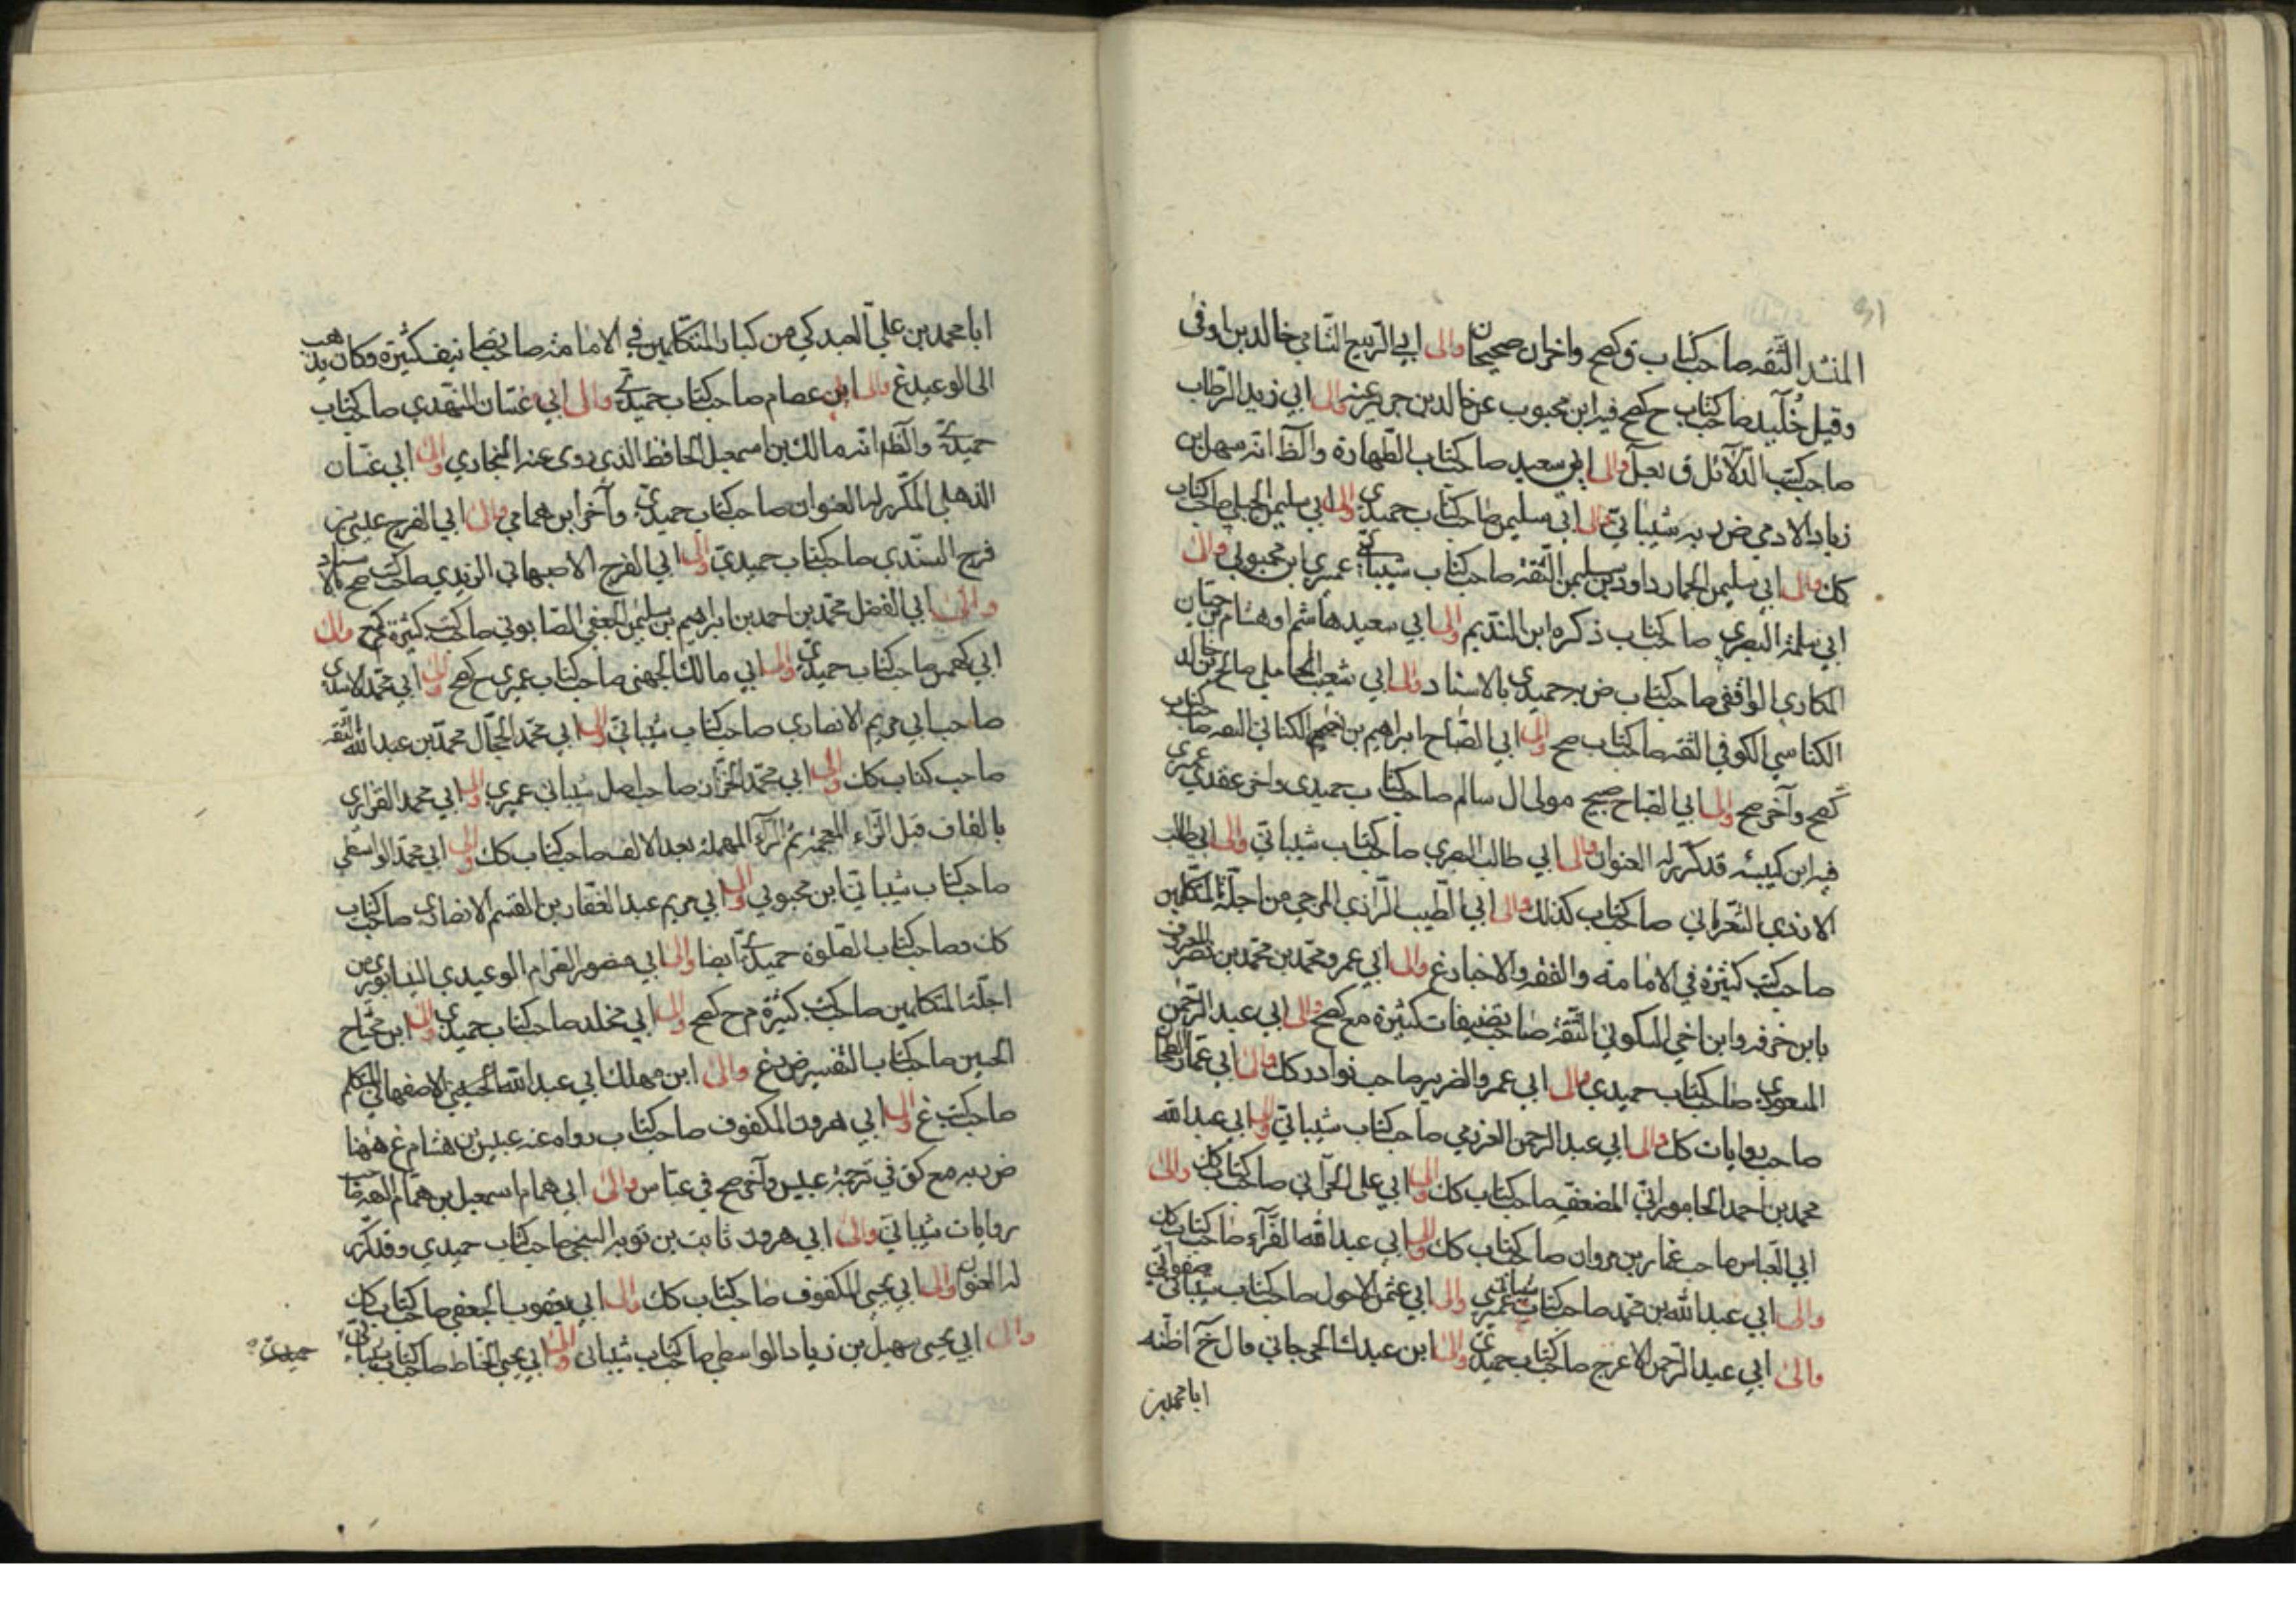 المنذر الثقه صاحب كتاب ق كصح واخران صحيحان والى ابي الربيع الشامي خالد بن اوفى
وقيل خليد صاحب كتاب ح كصح فيه ابن محبوب عن خالد بن جرير عنه والى ابي زيد الرطاب
صاحب كتب الدلائل ق والى ابي سعيد صاحب كتاب الطهارة والظ انه سهل بن
زياد الادمي ض د به شيباني والى ابي سليمن صاحب كتاب حميدي والى ابي سليمن الجبلي صاحب كتاب
كك والى ابي سليمن الحمار داود بن سليمن الثقة صاحب كتاب شيباني عميري ابن محبوبي والى
ابي سلمة البصري صاحب كتاب ذكره ابن النديم والى ابي سعيد هاشم او هشام بن حيان
المكاري الواقفي صاحب كتاب ض به حميدي بالاسناد والى ابي شعيب المحاملي صالح بن خالد
الكناسي الكوفي الثقه صاحب كتاب صح والى ابي الصباح ابراهيم بن نعيم الكناني الثقه صاحب كتاب
كصح وآخر صح والى ابي الصباح صبيح مولى ال سالم صاحب كتاب حميدي واخر عقدي عميري
فيه ابن كيبة قد تكرر له العنوان والى ابي طالب البصري صاحب كتاب شيباني والى ابي طالب
الازدي الشعراني صاحب كتاب كذلك والى ابي الطيب الرازي المرجي من اجلة المتكلمين
صاحب كتب كثيرة في الامامة والفقه والاخبار غ والى ابي عمرو محمد بن محمد بن نصر المعروف
بابن خرفه وابن اخي السكوني الثقة صاحب تصنيفات كثيرة مع كصح والى ابي عبد الرحمن
المسعودي صاحب كتاب حميدي والى ابي عمرو الضرير صاحب نوادر كك والى ابي عمار الطحان
صاحب روايات كك والى ابي عبد الرحمن العرزمي صاحب كتاب شيباني والى ابي عبد الله
محمد بن احمد الجاموراني المضعف صاحب كتاب كك والى ابي علي الحراني صاحب كتاب كك والى
ابي العباس صاحب عمار بن مروان صاحب كتاب كك والى ابي عبد الله الفراء صاحب كتاب كك
والى ابي عبد الله بن محمد صاحب كتاب شيباني عميري والى ابي عثمن الاحول صاحب كتاب شيباني صفواني
والى ابي عبد الرحمن الاعرج صاحب كتاب حميدي والى ابن عبدك الجرجاني قال خ اظنه
ابا محمد بن
ابا محمد بن علي العبدكي من كبار المتكلمين في الامامة صاحب تصانيف كثيرة وكان يذهب
الى الوعيد غ والى ابن عصام صاحب كتاب حميدي والى ابي غسان النهدي صاحب كتاب
حميدي والظ انه مالك بن اسمعيل الحافظ الذي روى عنه البخاري والى ابي غسان
الذهلي المكرر له العنوان صاحب كتاب حميدي وآخر ابن همامي والى ابي الفرج عيسى بن
فرج السندي صاحب كتاب حميدي والى ابي الفرج الاصبهاني الزيدي صاحب كتب صح بالاسناد
والى ابي الفضل محمد بن احمد بن ابراهيم بن سليمن الجعفي الصابوني صاحب كتب كثيرة كصح والى
ابي كهمس صاحب كتاب حميدي والى ابي مالك الجهني صاحب كتاب عميري ح كصح والى ابي محمد الاسدي
صاحب ابي مريم الانصاري صاحب كتاب شيباني والى ابي محمد الحجال محمد بن عبد الله الثقه
صاحب كتاب كك والى ابي محمد الخزاز صاحب اصل شيباني عميري والى ابي محمد القزازي
بالقاف قبل الزاء المعجمة ثم الراء المهملة بعد الالف صاحب كتاب كك والى ابي محمد الواسطي
صاحب كتاب شيباني ابن محبوبي والى ابي مريم عبد الغفار بن القسم الانصاري صاحب كتاب
كك وصاحب كتاب الصلوة حميدي ايضا والى ابي منصور الصرام الوعيدي النيسابوري من
اجلة المتكلمين صاحب كتب كثيرة م ح كصح والى ابي مخلد صاحب كتاب حميدي والى ابن محتاج
الحسين صاحب كتاب التفسير ض غ والى ابن مهلك ابي عبد الله الحسيني الاصفهاني المتكلم
صاحب كتب غ والى ابي هرون المكفوف صاحب كتاب رواه عنه عبيس بن هشام غ ههنا
ض د به مع كق في ترجمة عبيس وآخر صح في عباس والى ابي همام اسمعيل بن همام الثقه صاحب
روايات شيباني والى ابي هرون ثابت بن توبه السنجي صاحب كتاب حميدي وقد تكرر
له العنوان والى ابي يحيى المكفوف صاحب كتاب كك والى ابي يعقوب الجعفي صاحب كتاب كك
والى ابي يحيى سهيل بن زياد الواسطي صاحب كتاب شيباني والى ابي يحيى الحناط صاحب كتاب شيباني
حميدي